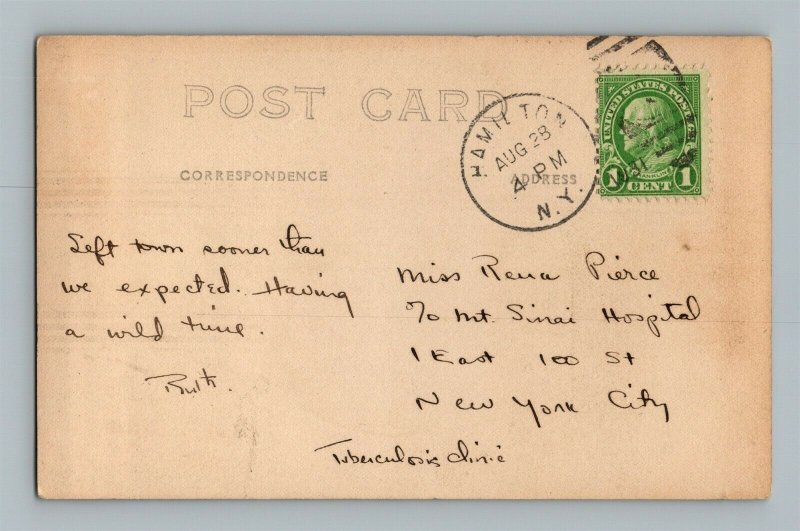 POST CARD
CORRESPONDENCE
ADDRESS
HAMILTON
AUG 28
4 PM
N.Y.
UNITED STATES POSTAGE
FRANKLIN
1 CENT 1
Left town sooner than
we expected. Having
a wild time.
Ruth.
Miss Rena Pierce
℅ Mt. Sinai Hospital
1 East 100 St
New York City
Tuberculosis clinic